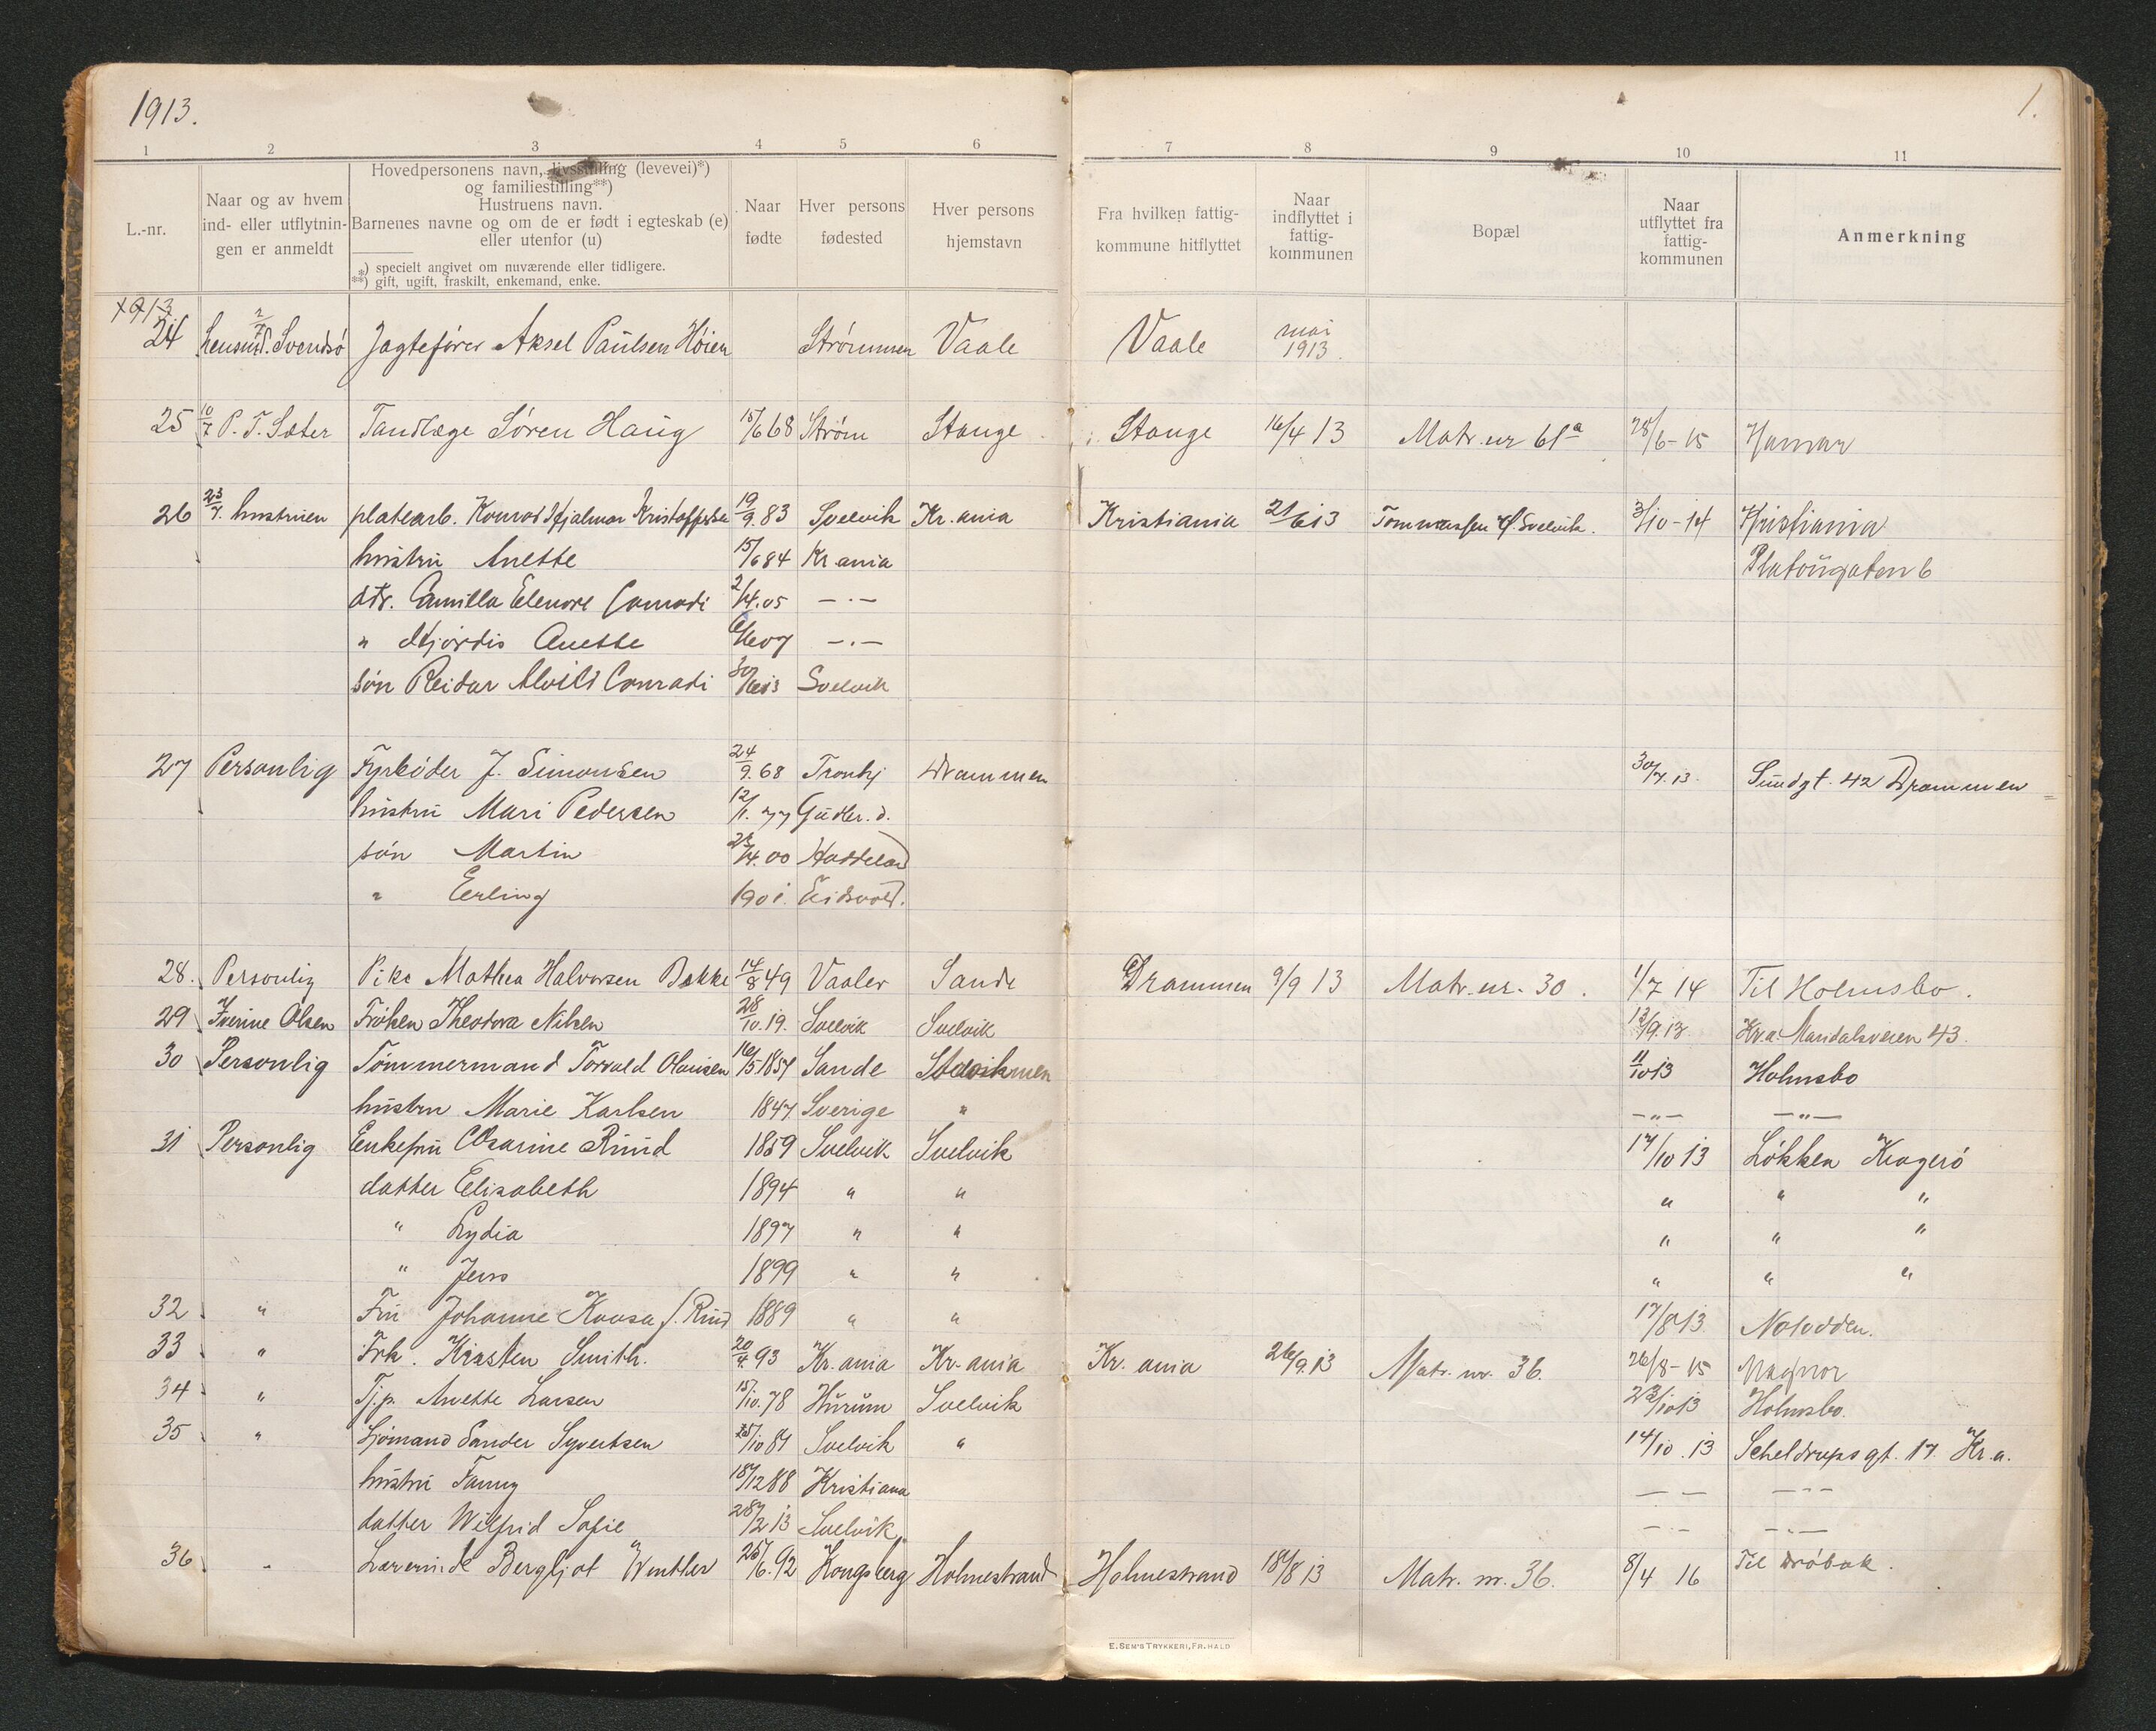 1913.
1.
1 2 3 4 5 6 7 8 9 10 11
L.-nr.
Naar og av hvem
ind- eller utflytnin-
gen er anmeldt
Hovedpersonens navn, livsstilling (levevei)*)
og familiestilling**)
Hustruens navn.
Barnenes navne og om de er født i egteskab (e)
eller utenfor (u)
*) specielt angivet om nuværende eller tidligere.
**) gift, ugift, fraskilt, enkemand, enke.
Naar
fødte
Hver persons
fødested
Hver persons
hjemstavn
Fra hvilken fattig-
kommune hitflyttet
Naar
indflyttet i
fattig-
kommunen
Bopæl
Naar
utflyttet fra
fattig-
kommunen
Anmerkning
1913
24 2/7 Svendsø Jagtefører Aksel Paulsen Høien Strømmen Vaale Vaale mai 1913.
25 10/7 P. T. Sæter Tandlæge Søren Haug 15/6 68 Strøm Stange Stange 16/4 13 Matr. nr 61a 28/6-15 Hamar
26 23/7. hustruen platearb. Konrad Hjalmar Kristoffersen 19/9.83 Svelvik Kr.ania Kristiania 21/6 13 Tommassen Svelvik. 3/10-14 Kristiania
hustru Anette 15/6 84 Kr ania Platougaten 6
dtr. Camilla Elenore Conradi 2/4.05 —.—
" Hjørdis Anette 07 —.—
søn Reidar Alvild Conradi 13 Svelvik
27 Personlig Fyrbøder J. Simonsen 24/9.68 Tronhj Drammen 30/7.13. Sundgt. 42 Drammen
hustru Mari Pedersen 12/1. 77 Gudbr. d.
søn Martin 4.00 Haddeland
" Erling 1901. Eidsvold.
28. Personlig Pike Mathea Halvorsen Bakke 14/8 49 Vaaler Sande Drammen 9/9 13 Matr. nr. 30. 1/7 14 Til Holmsbo.
29 Iverine Olsen Frøken Theodora Nilsen 28/10.19. Svelvik Svelvik 13/9.13 Kr.a. Maridalsveien 43.
30 Personlig Tømmermand Torvald Olausen 16/5 1857 Sande 11/10 13 Holmsbo
hustru Marie Karlsen 1847 Sverige " —"— —"—
31 Personlig Enkefru Rund 1859 Svelvik Svelvik 17/10 13 Løkken Kragerø
datter Elisabeth 1894 " " " " "
" Lydia 1897 " " " " "
" Jens 1899 " " " " "
32 " Fru Johanne f. Rund 1889 " " 17/8 13 Notodden.
33 " Frk. Kirsten Smith. 20/4.93 Kr. ania Kr. ania Kr. ania 26/9.13 Matr. nr. 36. 26/8-15 Magnor
34 " Tj.p. Anette Larsen 15/10.78 Hurum Svelvik 23/10 13 Holmsbo.
35 " Sjømand Sander Syvertsen 25/10 81 Svelvik " 14/10.13 Scheldrupsgt. 17. Kr.a.
hustru Fanny 18/12 88 Kristiania — — —"—
datter Wilfrid Sofie 28/2 13 Svelvik —.— —.—
36 " Lærerinde Bergljot Winther 25/6.92 Kongsberg Holmestrand Holmestrand 18/8 13 Matr. nr. 36. 8/4 16 Til Drøbak.
E. SEM'S TRYKKERI, FR.HALD